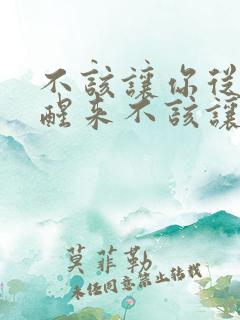 不該讓你從
醒来不該讓
莫菲勒
未经同意禁止转载